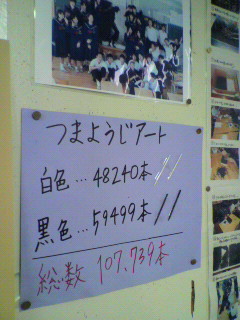 つまようじアート
白色…48240本
黒色…59499本
総数 107,739本